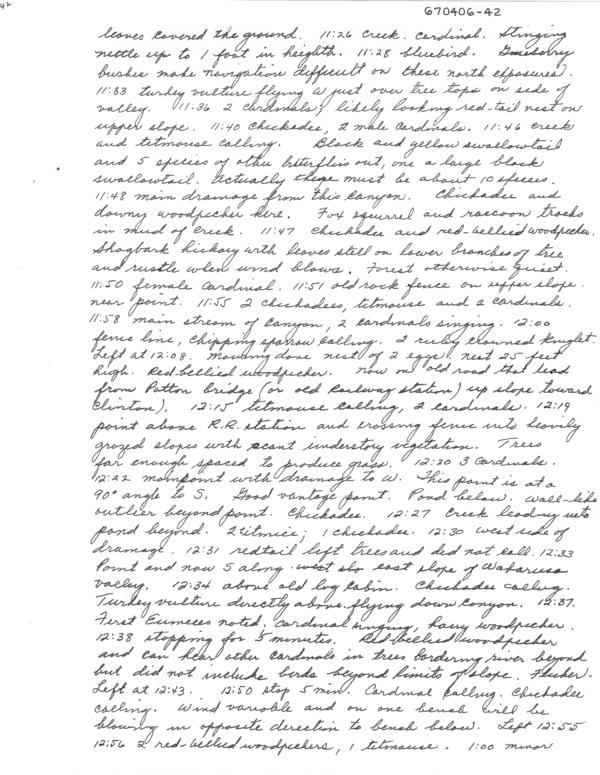 42
670406-42
leaves covered the ground. 11:26 creek. cardinal. Stinging
nettle up to 1 foot in heighth. 11:28 bluebird. Gooseberry
bushes make navigation difficult on these north exposures.
11:33 turkey vulture flying W just over tree tops on side of
valley. 11:36 2 cardinals; likely looking red-tail nest on
upper slope. 11:40 Chickadee, 2 male cardinals. 11:46 creek
and titmouse calling. Black and yellow swallowtail
and 5 species of other butterflies out, one a large black
swallowtail. Actually there must be about 10 species.
11:48 main drainage from this canyon. Chickadee and
downy woodpecker here. Fox squirrel and raccoon tracks
in mud of creek. 11:47 chickadee and red-bellied woodpecker.
Shagbark hickory with leaves still on lower branches of tree
and rustle when wind blows. Forest otherwise quiet.
11:50 female cardinal. 11:51 old rock fence on upper slope
near point. 11:55 2 chickadees, titmouse and 2 cardinals.
11:58 main stream of canyon, 2 cardinals singing. 12:00
fence line, chipping sparrow calling. 2 ruby crowned kinglet.
Left at 12:08. Mourning dove nest of 2 eggs, nest 25 feet
high. Red-bellied woodpecker. now on old road that lead
from Patton bridge (or old Railway station) up slope toward
Clinton). 12:15 titmouse calling, 2 cardinals. 12:19
point above R.R. station and crossing fence into heavily
grazed slopes with scant understory vegetation. Trees
far enough spaced to produce grass. 12:20 3 Cardinals.
12:22 main point with drainage to W. This point is at a
90° angle to S. Good vantage point. Pond below. Wall-like
outlier beyond point. Chickadee. 12:27 Creek leading into
pond beyond. 2 titmice; 1 chickadee. 12:30 west side of
drainage. 12:31 redtail left trees and did not call. 12:33
Point and now S along west slo east slope of Wakarusa
valley. 12:34 above old log cabin. Chickadee calling.
Turkey vulture directly above flying down canyon. 12:37.
First Eumeces noted. Cardinal singing, hairy woodpecker.
12:38 stopping for 5 minutes. Red-bellied woodpecker
and can hear other cardinals in trees bordering river beyond
but did not include birds beyond limits of slope. Flicker.
Left at 12:43. 12:50 stop 5 min. Cardinal calling. Chickadee
calling. Wind variable and on one bench will be
blowing in opposite direction to bench below. Left 12:55
12:56 2 red-bellied woodpeckers, 1 titmouse. 1:00 minor